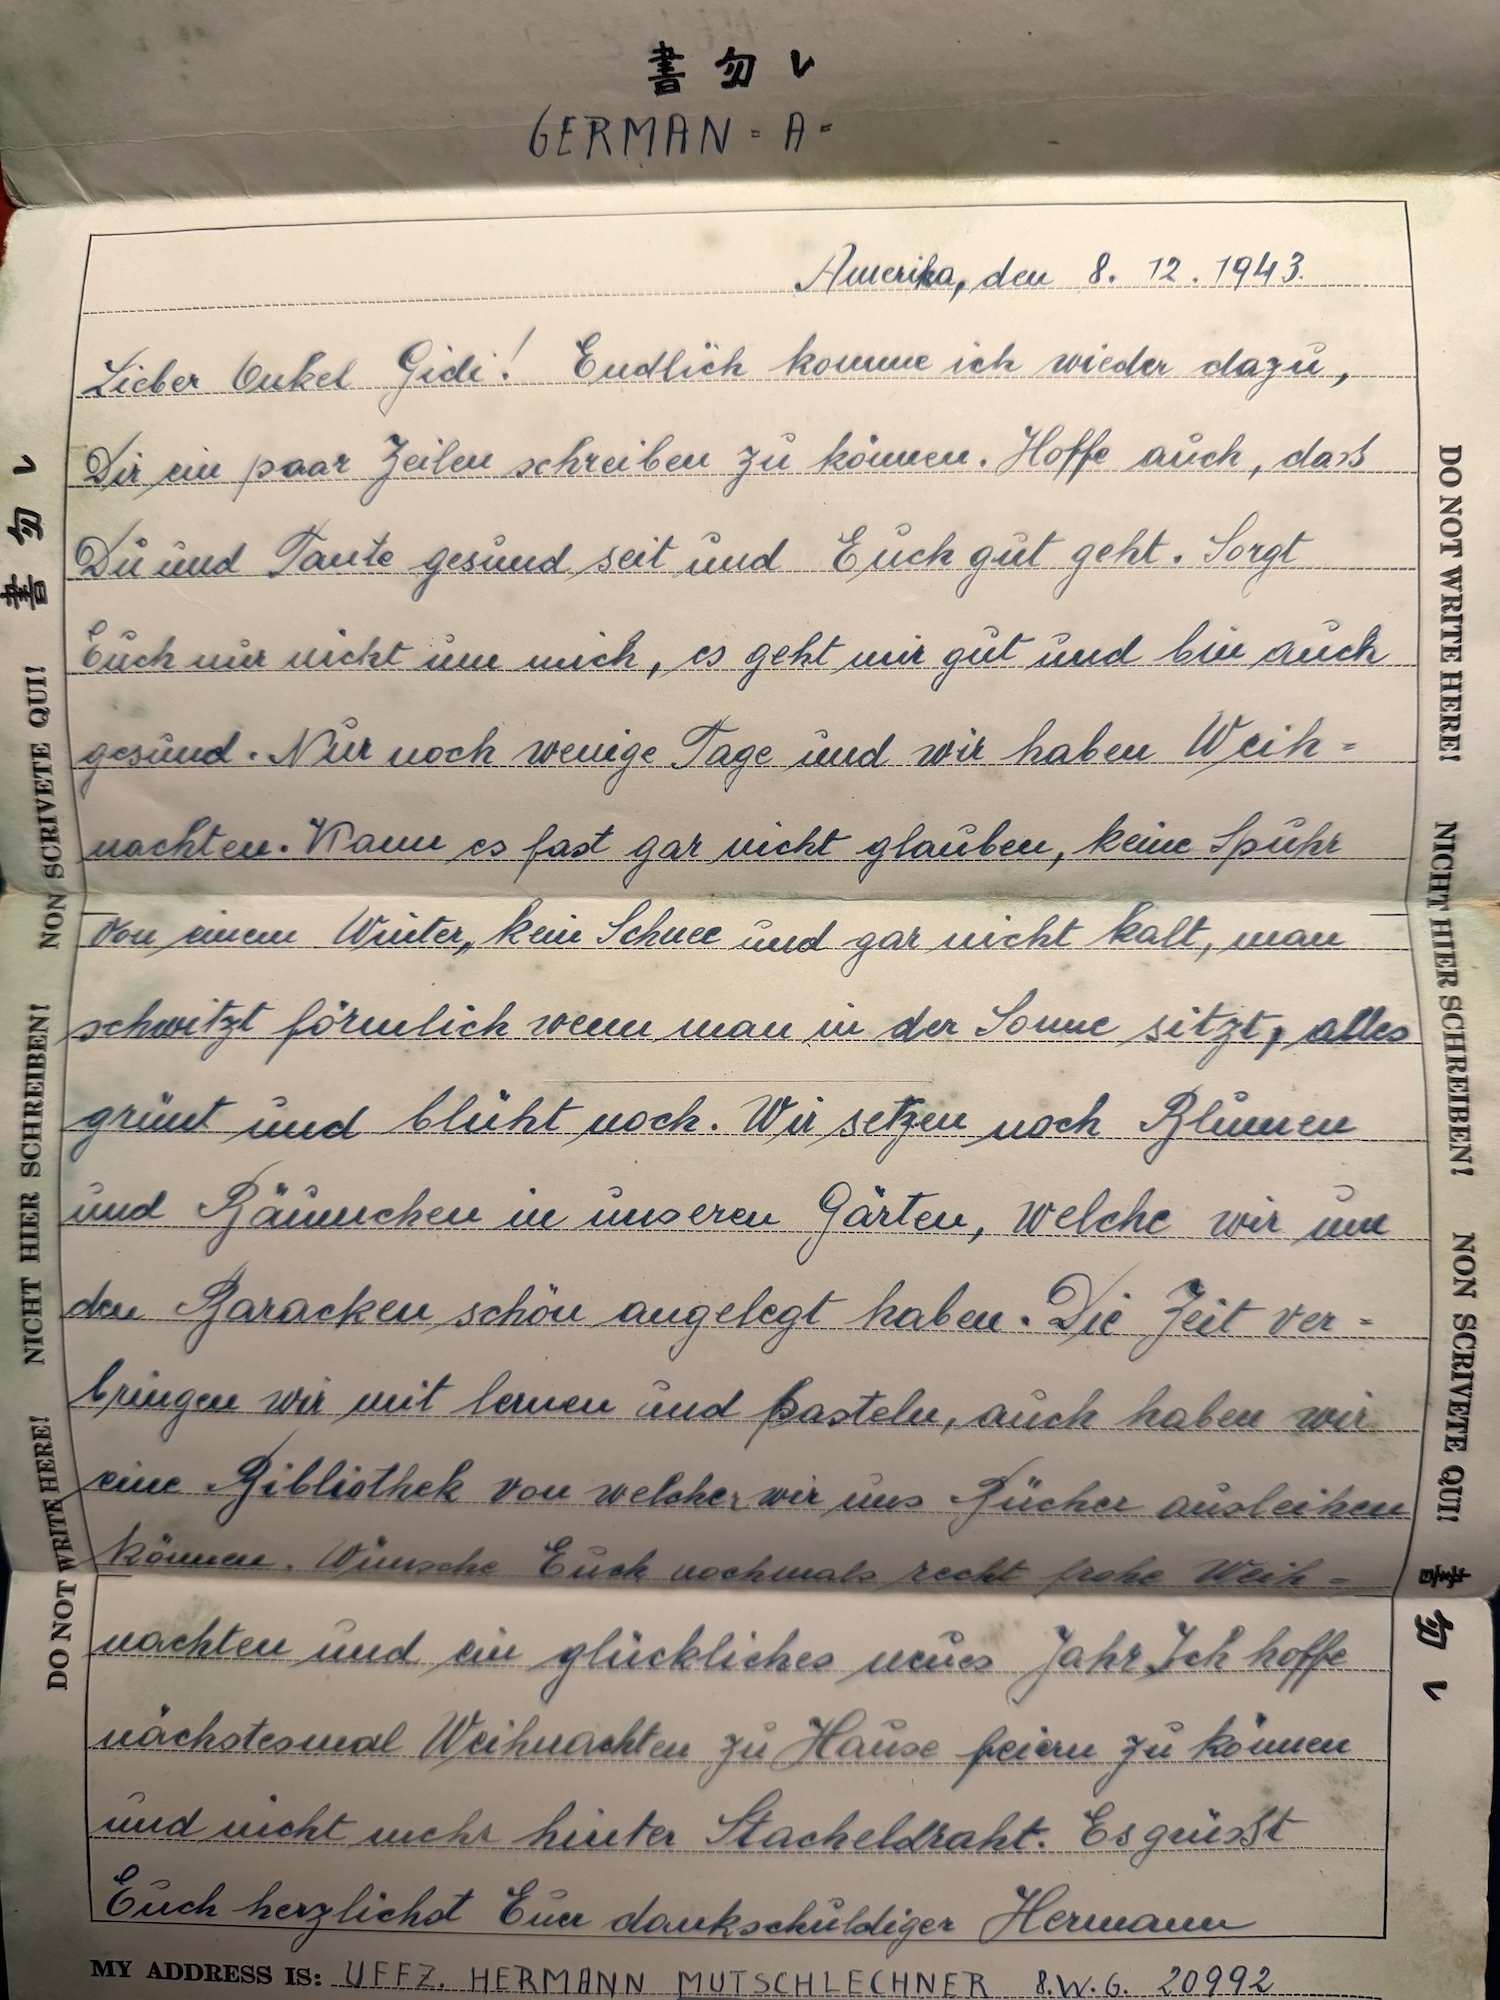 書勿レ
GERMAN = A =
Amerika, den 8. 12. 1943.
Lieber Onkel Gidi! Endlich komme ich wieder dazu,
Dir ein paar Zeilen schreiben zu können. Hoffe auch, dass
Du und Tante gesund seit und Euch gut geht. Sorgt
Euch nur nicht um mich, es geht mir gut und bin auch
gesund. Nur noch wenige Tage und wir haben Weih=
nachten. Kann es fast gar nicht glauben, keine Spuhr
von einem Winter, kein Schnee und gar nicht kalt, man
schwitzt förmlich wenn man in der Sonne sitzt, alles
grünt und blüht noch. Wir setzen noch Blumen
und Bäumchen in unseren Gärten, welche wir um
den Baracken schön angelegt haben. Die Zeit ver=
bringen wir mit lernen und basteln, auch haben wir
eine Bibliothek von welcher wir uns Bücher ausleihen
können. Wünsche Euch nochmals recht frohe Weih=
nachten und ein glückliches neues Jahr Ich hoffe
nächstesmal Weihnachten zu Hause feiern zu können
und nicht mehr hinter Stacheldraht. Es grüsst
Euch herzlichst Euer dankschuldiger Hermann
MY ADDRESS IS: UFFZ. HERMANN MUTSCHLECHNER 8.W.G. 20992
DO NOT WRITE HERE! NICHT HIER SCHREIBEN! NON SCRIVETE QUI! 書勿レ
DO NOT WRITE HERE! NICHT HIER SCHREIBEN! NON SCRIVETE QUI! 書勿レ